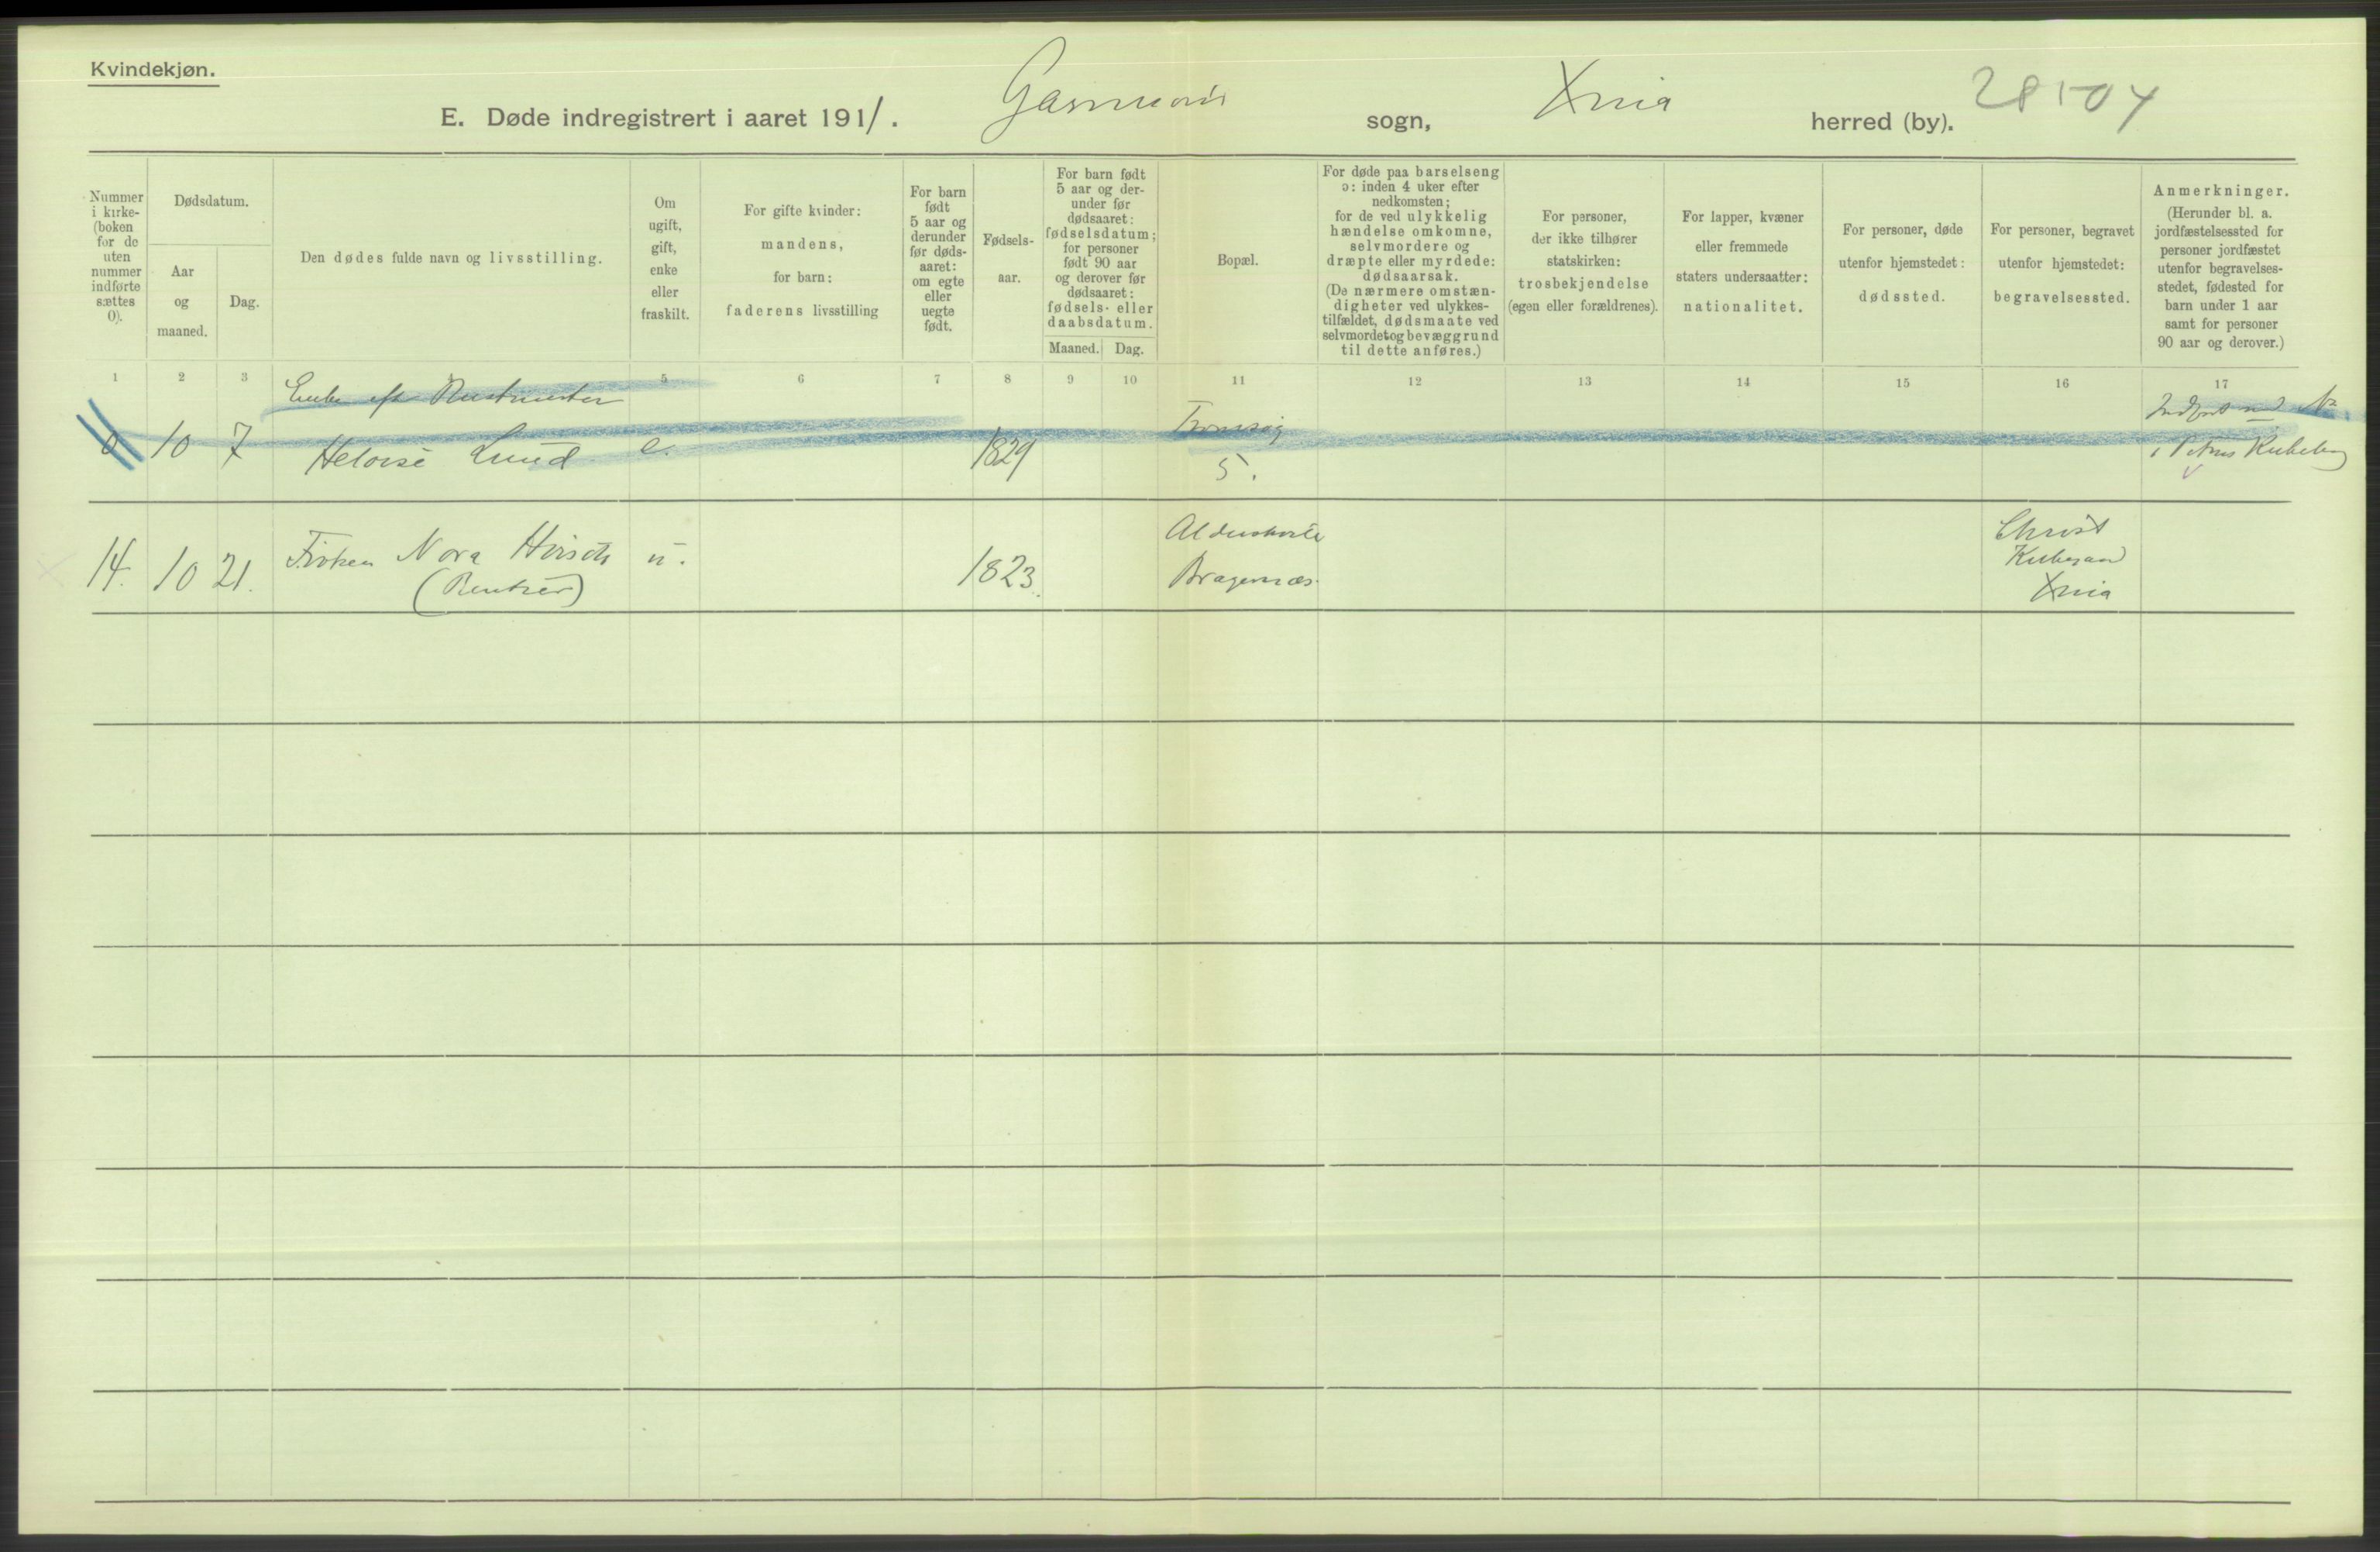 Kvindekjøn.
E. Døde indregistrert i aaret 1911. sogn, Xnia herred (by).
Nummer i kirke- (boken for de uten nummer indførte sættes 0).
Dødsdatum.
Aar og maaned.
Dag.
Den dødes fulde navn og livsstilling.
Om ugift, gift, enke eller fraskilt.
For gifte kvinder: mandens, for barn: faderens livsstilling
For barn født 5 aar og derunder før døds- aaret: om egte eller uegte født.
Fødsels- aar.
For barn født 5 aar og der- under før dødsaaret: fødselsdatum; for personer født 90 aar og derover før dødsaaret: fødsels- eller daabsdatum.
Maaned. Dag.
Bopæl.
For døde paa barselseng ɔ: inden 4 uker efter nedkomsten; for de ved ulykkelig hændelse omkomne, selvmordere og dræpte eller myrdede: dødsaarsak. (De nærmere omstæn- digheter ved ulykkes- tilfældet, dødsmaate ved selvmordet og bevæggrund til dette anføres.)
For personer, der ikke tilhører statskirken: trosbekjendelse (egen eller forældrenes).
For lapper, kvæner eller fremmede staters undersaatter: nationalitet.
For personer, døde utenfor hjemstedet: dødssted.
For personer, begravet utenfor hjemstedet: begravelsessted.
Anmerkninger. (Herunder bl. a. jordfæstelsessted for personer jordfæstet utenfor begravelses- stedet, fødested for barn under 1 aar samt for personer 90 aar og derover.)
1 2 3 4 5 6 7 8 9 10 11 12 13 14 15 16 17
Enke eft
0 10 7 Heloise Lund e. 1829 5.
14. 10 21. Frøken Nora u. 1823.
(Rentier)
Bragernæs.
Christ
Xnia